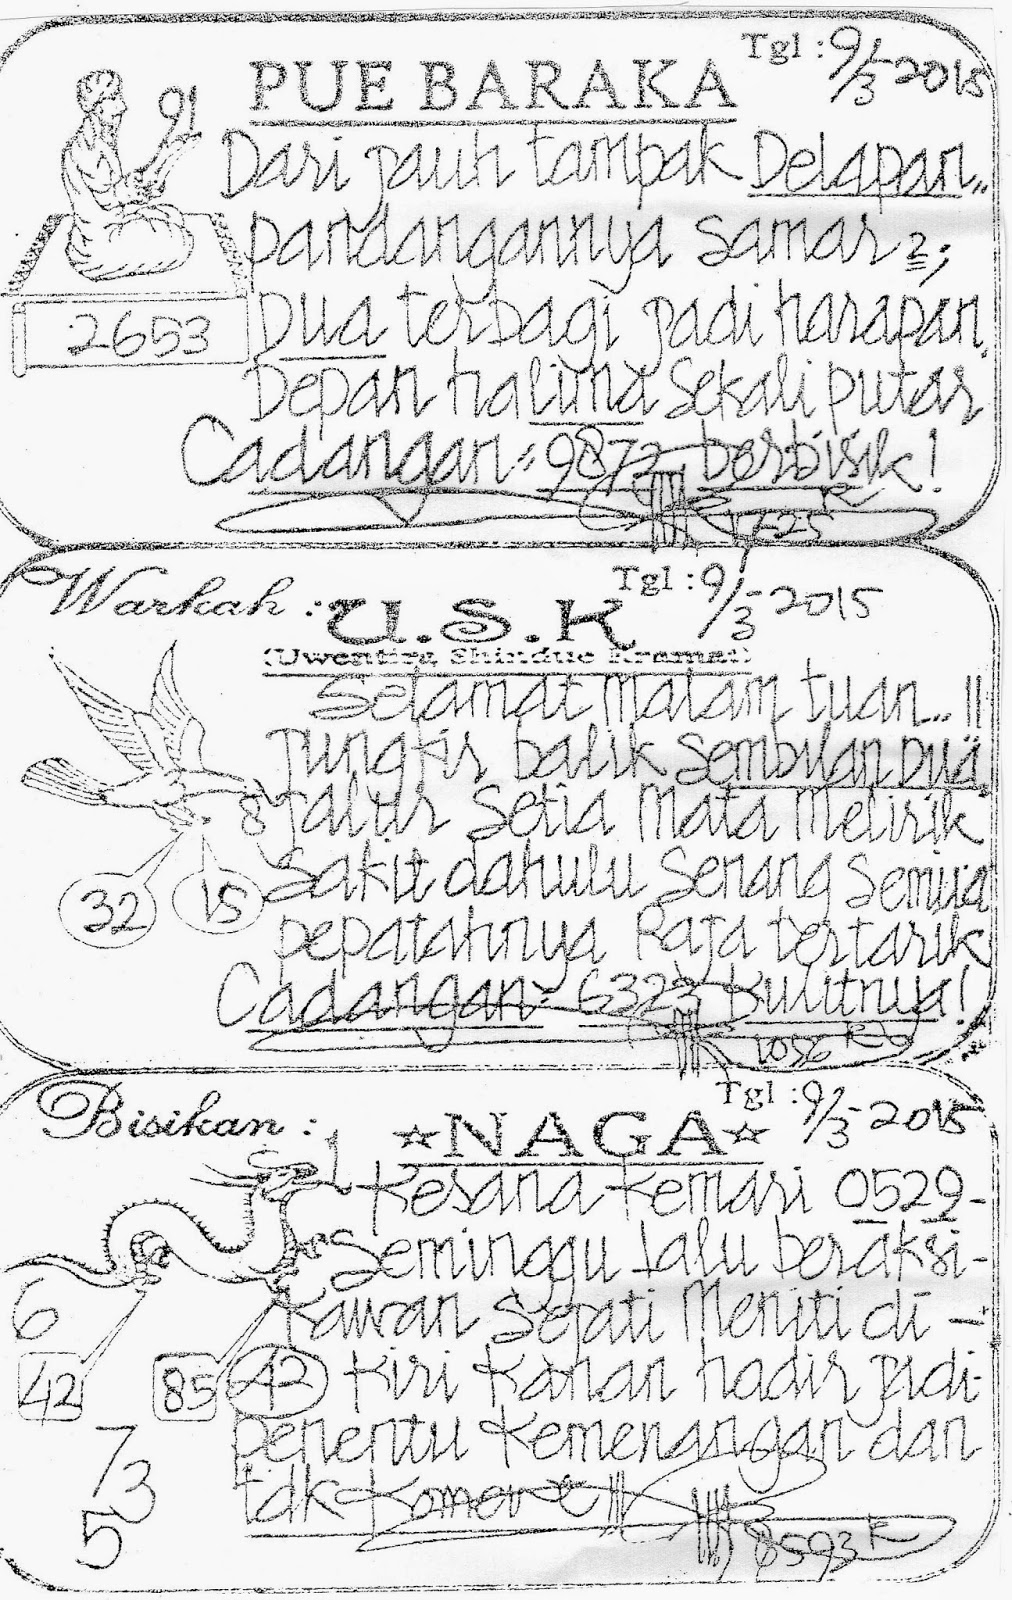 Tgl : 9/3-2015
PUE BARAKA
91
Dari jauh tampak Delapan..
pandangannya samar2;
2653
Dua terbagi jadi harapan.
Depan halima sekali putar
Cadangan = 9872 berbisik!
Warkah : U.S.K
Tgl : 9/3-2015
(Uwentira Shindue Kramat)
Selamat Malam tuan.. !!
Jungkir balik Sembilan Dua
8
Jalur Setia Mata Melirik
32 15
Sakit dahulu Senang Semua
pepatahnya Raja tertarik
Cadangan = 6323 Kulitnya!
1056
Bisikan :
Tgl : 9/3-2015
☆NAGA☆
1
Kesana Kemari 0529-
Seminggu lalu beraksi-
6
Kawan Sejati Meniti di-
42 85 42 Kiri Kanan hadir jadi-
penentu Kemenangan dan
73
5
8593